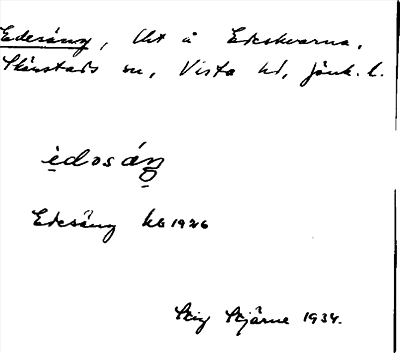 Edesäng, lht u Edeskvarna,
Skärstads sn, Vista hd, Jönk. l.
ìdosáŋ
Edesäng kb 1926
Stig Stjärne 1934.